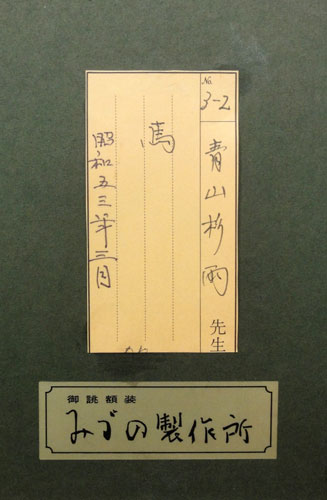 No.
3-2
青山杉雨先生
馬
昭和五三年三月
御誂額装
みづの製作所